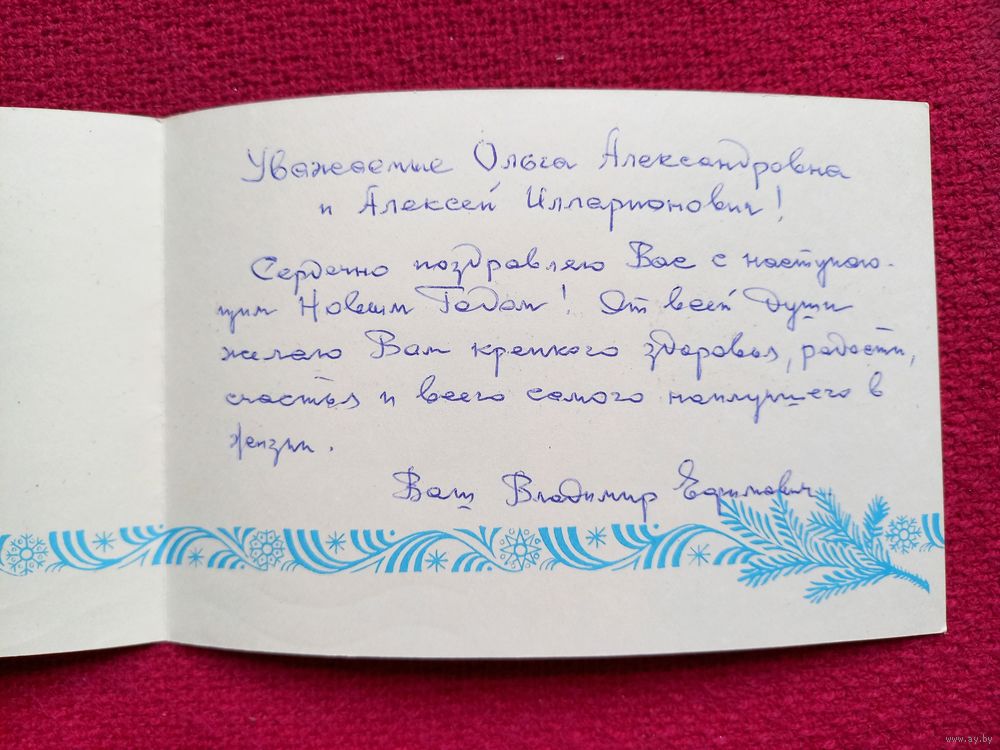 Уважаемые Ольга Александровна
и Алексей Илларионович!
Сердечно поздравляю Вас с наступаю-
щим Новым Годом! От всей души
желаю Вам крепкого здоровья, радости,
счастья и всего самого наилучшего в
жизни.
Ваш Владимир Ефимович.
www.ay.by